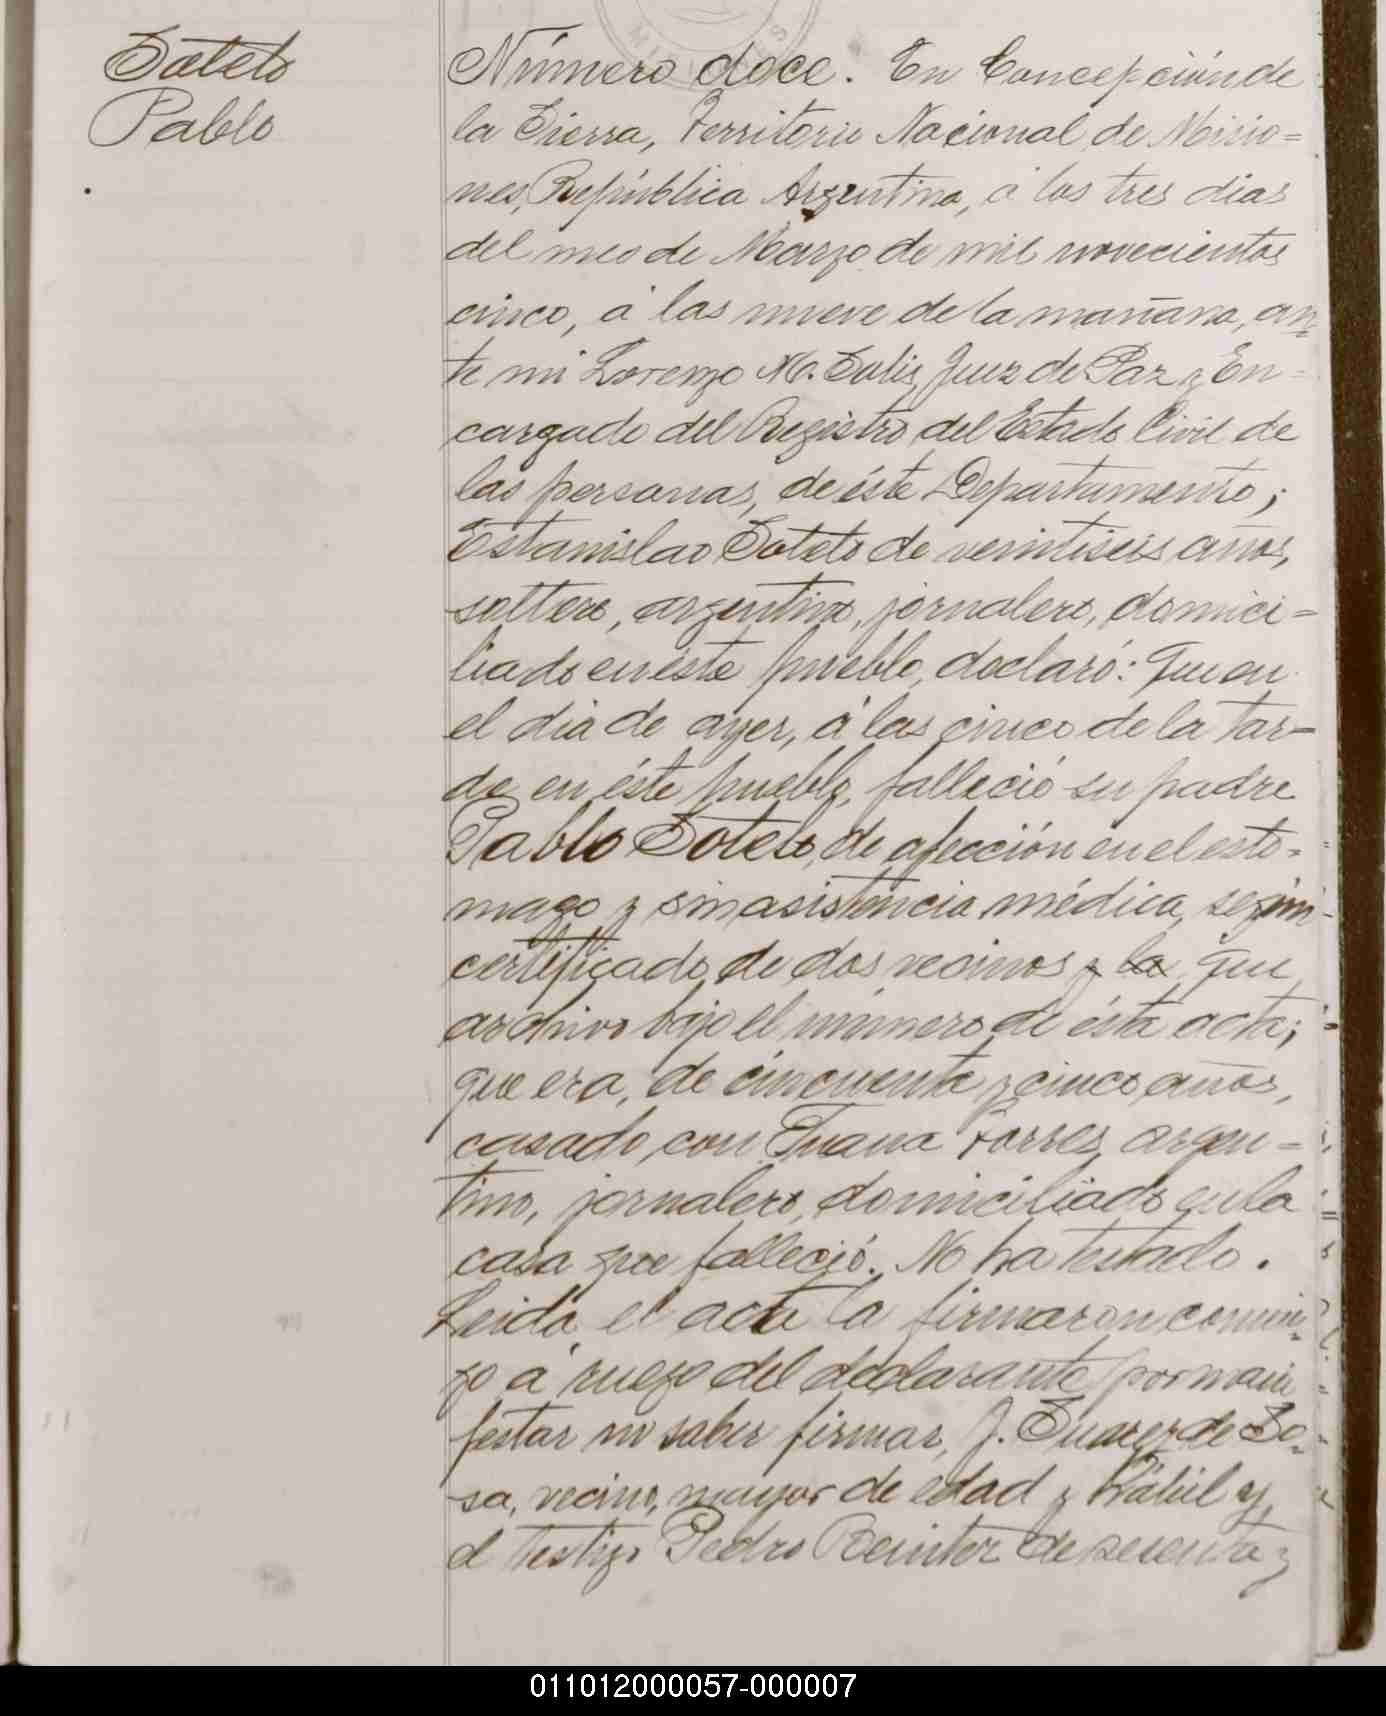 Sotelo
Pablo
Número doce. En Concepción de
la Sierra, Territorio Nacional de Misio=
nes, República Argentina, á los tres dias
del mes de Marzo de mil novecientos
cinco, á las nueve de la mañana, an=
te mi Lorenzo M. Solis, Juez de Paz y En=
cargado del Registro del Estado Civil de
las personas, de éste Departamento;
Estanislao Sotelo de veintiseis años,
soltero, argentino, jornalero, domici=
liado en éste pueblo, declaró: Que en
el dia de ayer, á las cinco de la tar=
de en éste pueblo, falleció su padre
Pablo Sotelo, de afección en el esto=
mago y sin asistencia médica, según
certificado de dos vecinos y lo que
archivo bajo el número de ésta acta;
que era, de cincuenta y cinco años,
casado, con Juana Torres, argen=
tino, jornalero, domiciliado en la
casa que falleció. No ha testado.
Leida el acta la firmaron conmi=
go á ruego del declarante por mani
festar no saber firmar, J. Suarez de So=
sa, vecino, mayor de edad y hábil y
el testigo Pedro de sesenta y
011012000057-000007